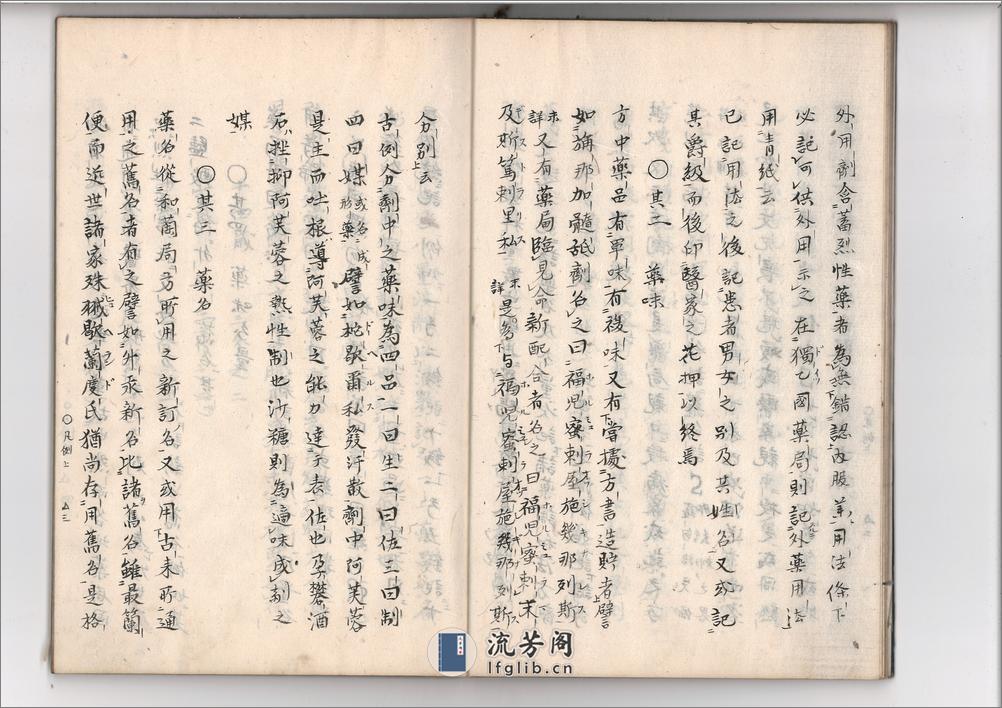 外用劑含蓄烈性藥者為無錯認內服並用法條下
必記可供外用示之在獨乙国藥局則記外藥用法
用青紙云
已記用法之後記患者男女之別及其姓名又或記
其爵級而後印醫家之花押以終焉
〇其二 藥味
方中藥品有單味有複味又有嘗據方書造貯者譬
如旃那加髓舐劑名之曰福児蜜刺屋施幾那列斯
未詳又有藥局臨見命新配合者名之曰福児蜜刺末
及斯篤刺里私未詳是為与福児蜜刺屋施幾那列斯
分別云
古例分劑中之藥味為四品一曰生二曰佐三曰制
四曰媒或名成形藥譬如枇歇爾私發汗散劑中阿芙蓉
是生而吐根導阿芙蓉之能力達于表佐也孕礬酒
石挫抑阿芙蓉之熱性制也沙糖則為適味成劑之
媒
〇其三 藥名
藥名從和蘭局方所用之新訂名又或用古来所通
用之舊名者有之譬如升汞新名比諸舊名雖最簡
便而近世諸家殊撇歇蘭度氏猶尚存用舊名是格
〇凡例上
流芳阁
lfglib.cn